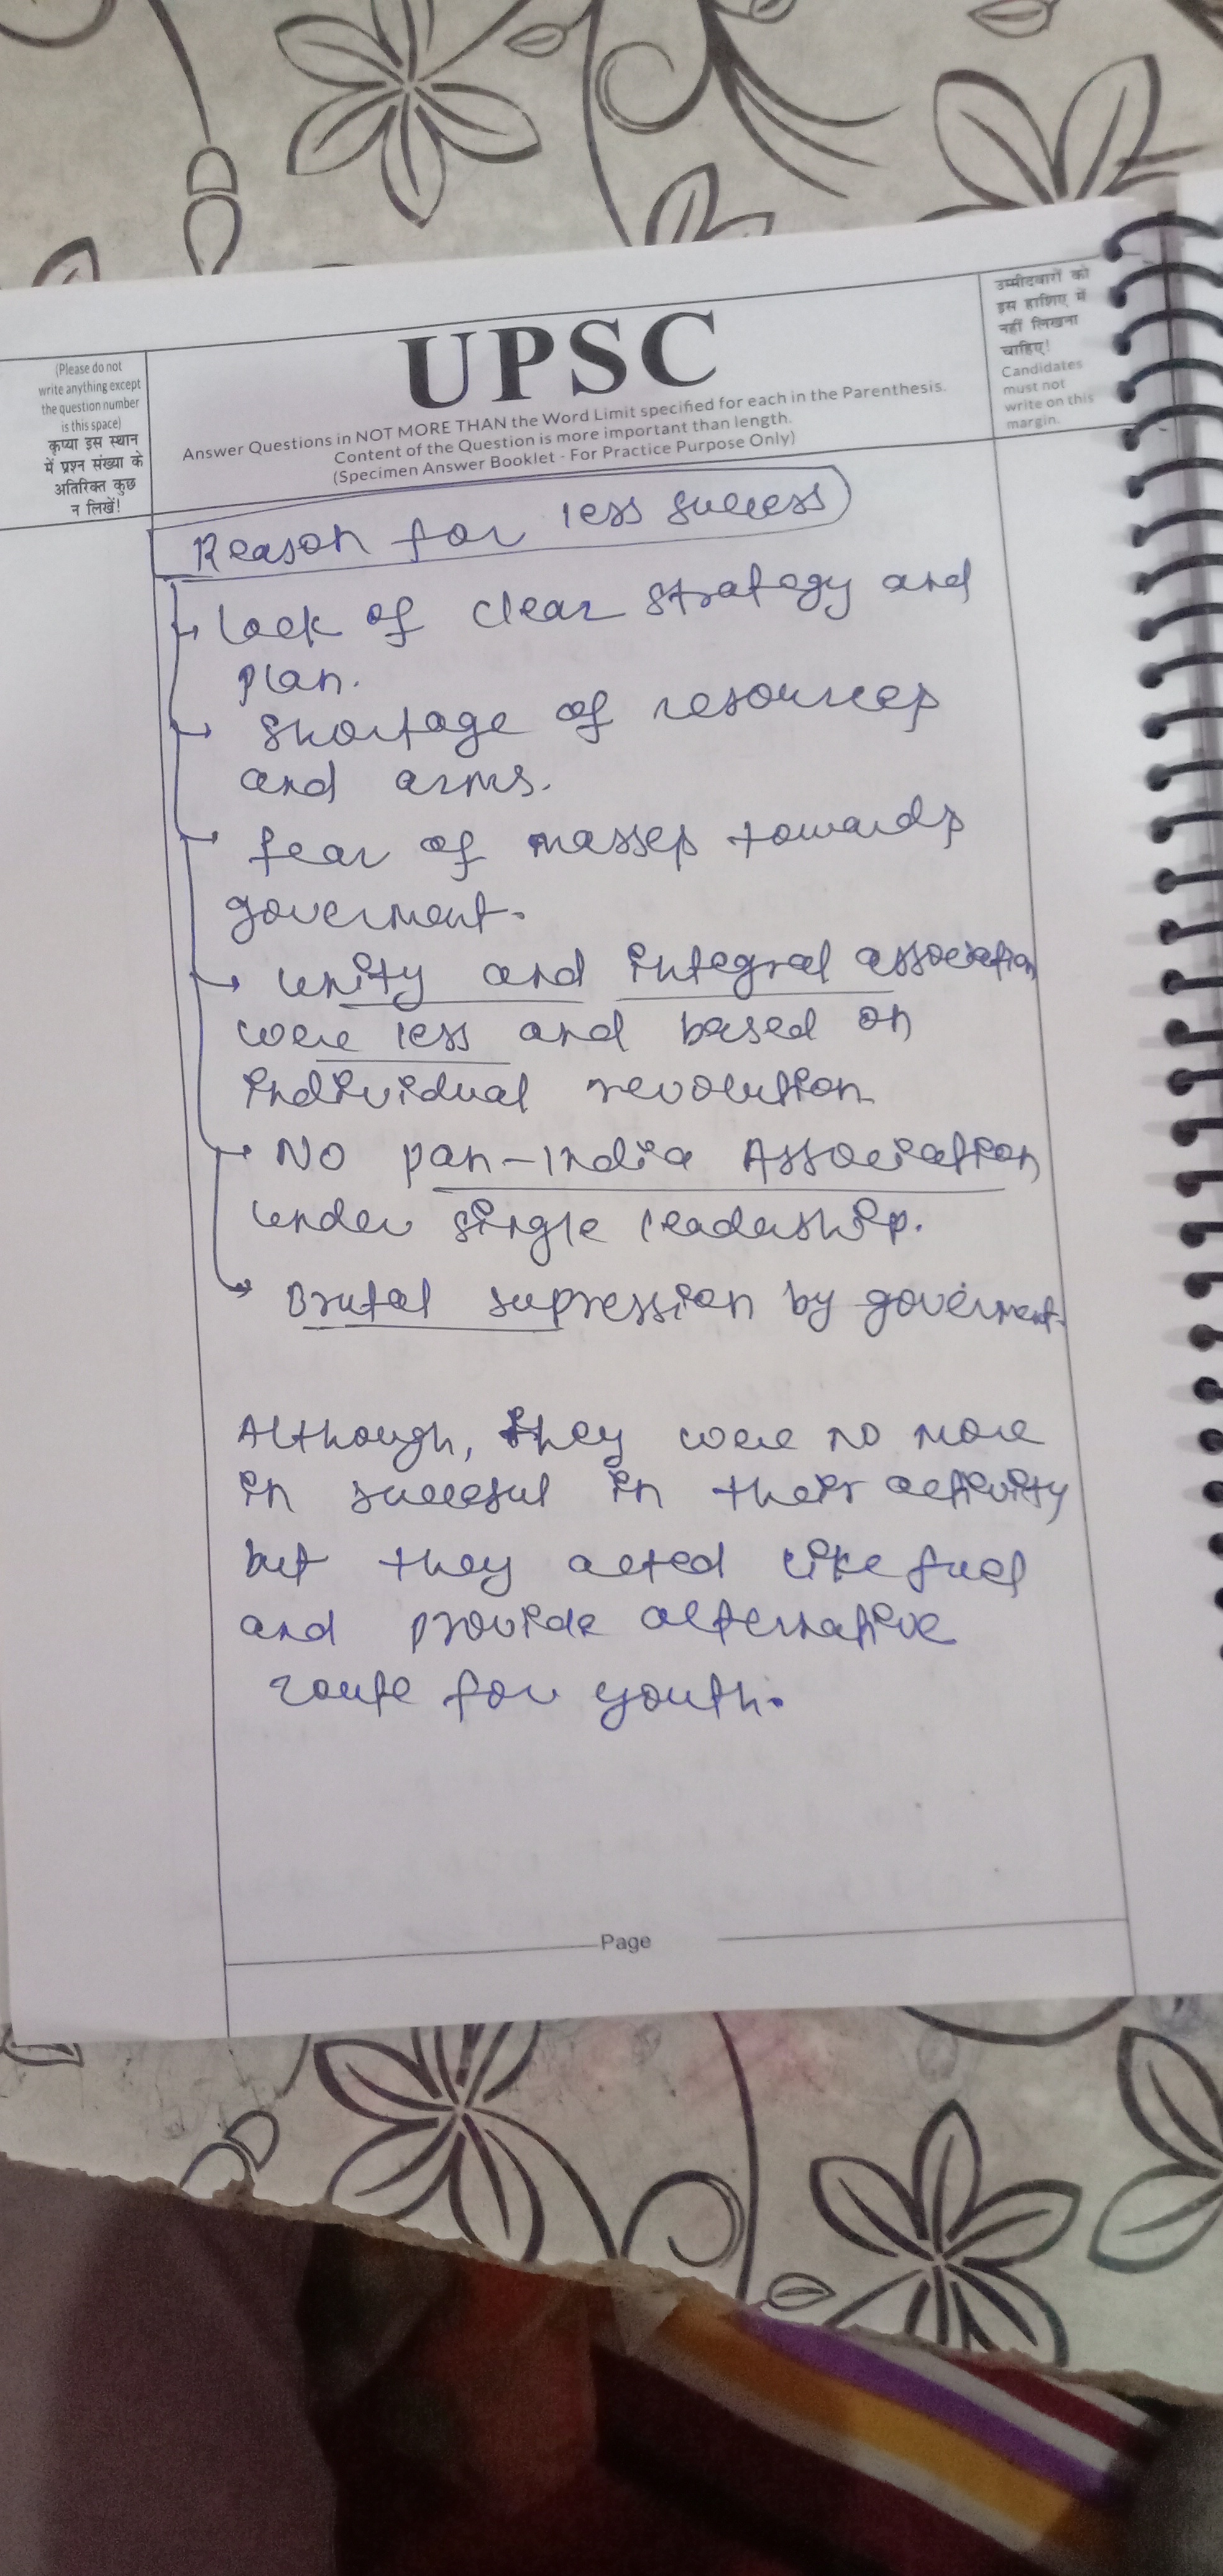 (Please do not
write anything except
the question number
is this space)
कृप्या इस स्थान
में प्रश्न संख्या के
अतिरिक्त कुछ
न लिखें!
UPSC
Answer Questions in NOT MORE THAN the Word Limit specified for each in the Parenthesis.
Content of the Question is more important than length.
(Specimen Answer Booklet - For Practice Purpose Only)
उम्मीदवारों को
इस हाशिए में
नहीं लिखना
चाहिए!
Candidates
must not
write on this
margin.
Reason for less success
lack of clear strategy and
plan.
shortage of resources
and arms.
fear of masses towards
goverment.
unity and integral association
were less and based on
individual revolution
No pan-India Association
under single leadership.
Brutal supression by goverment.
Although, they were no more
in succesful in their activity
but they acted like fuel
and provide alternative
route for youth.
Page